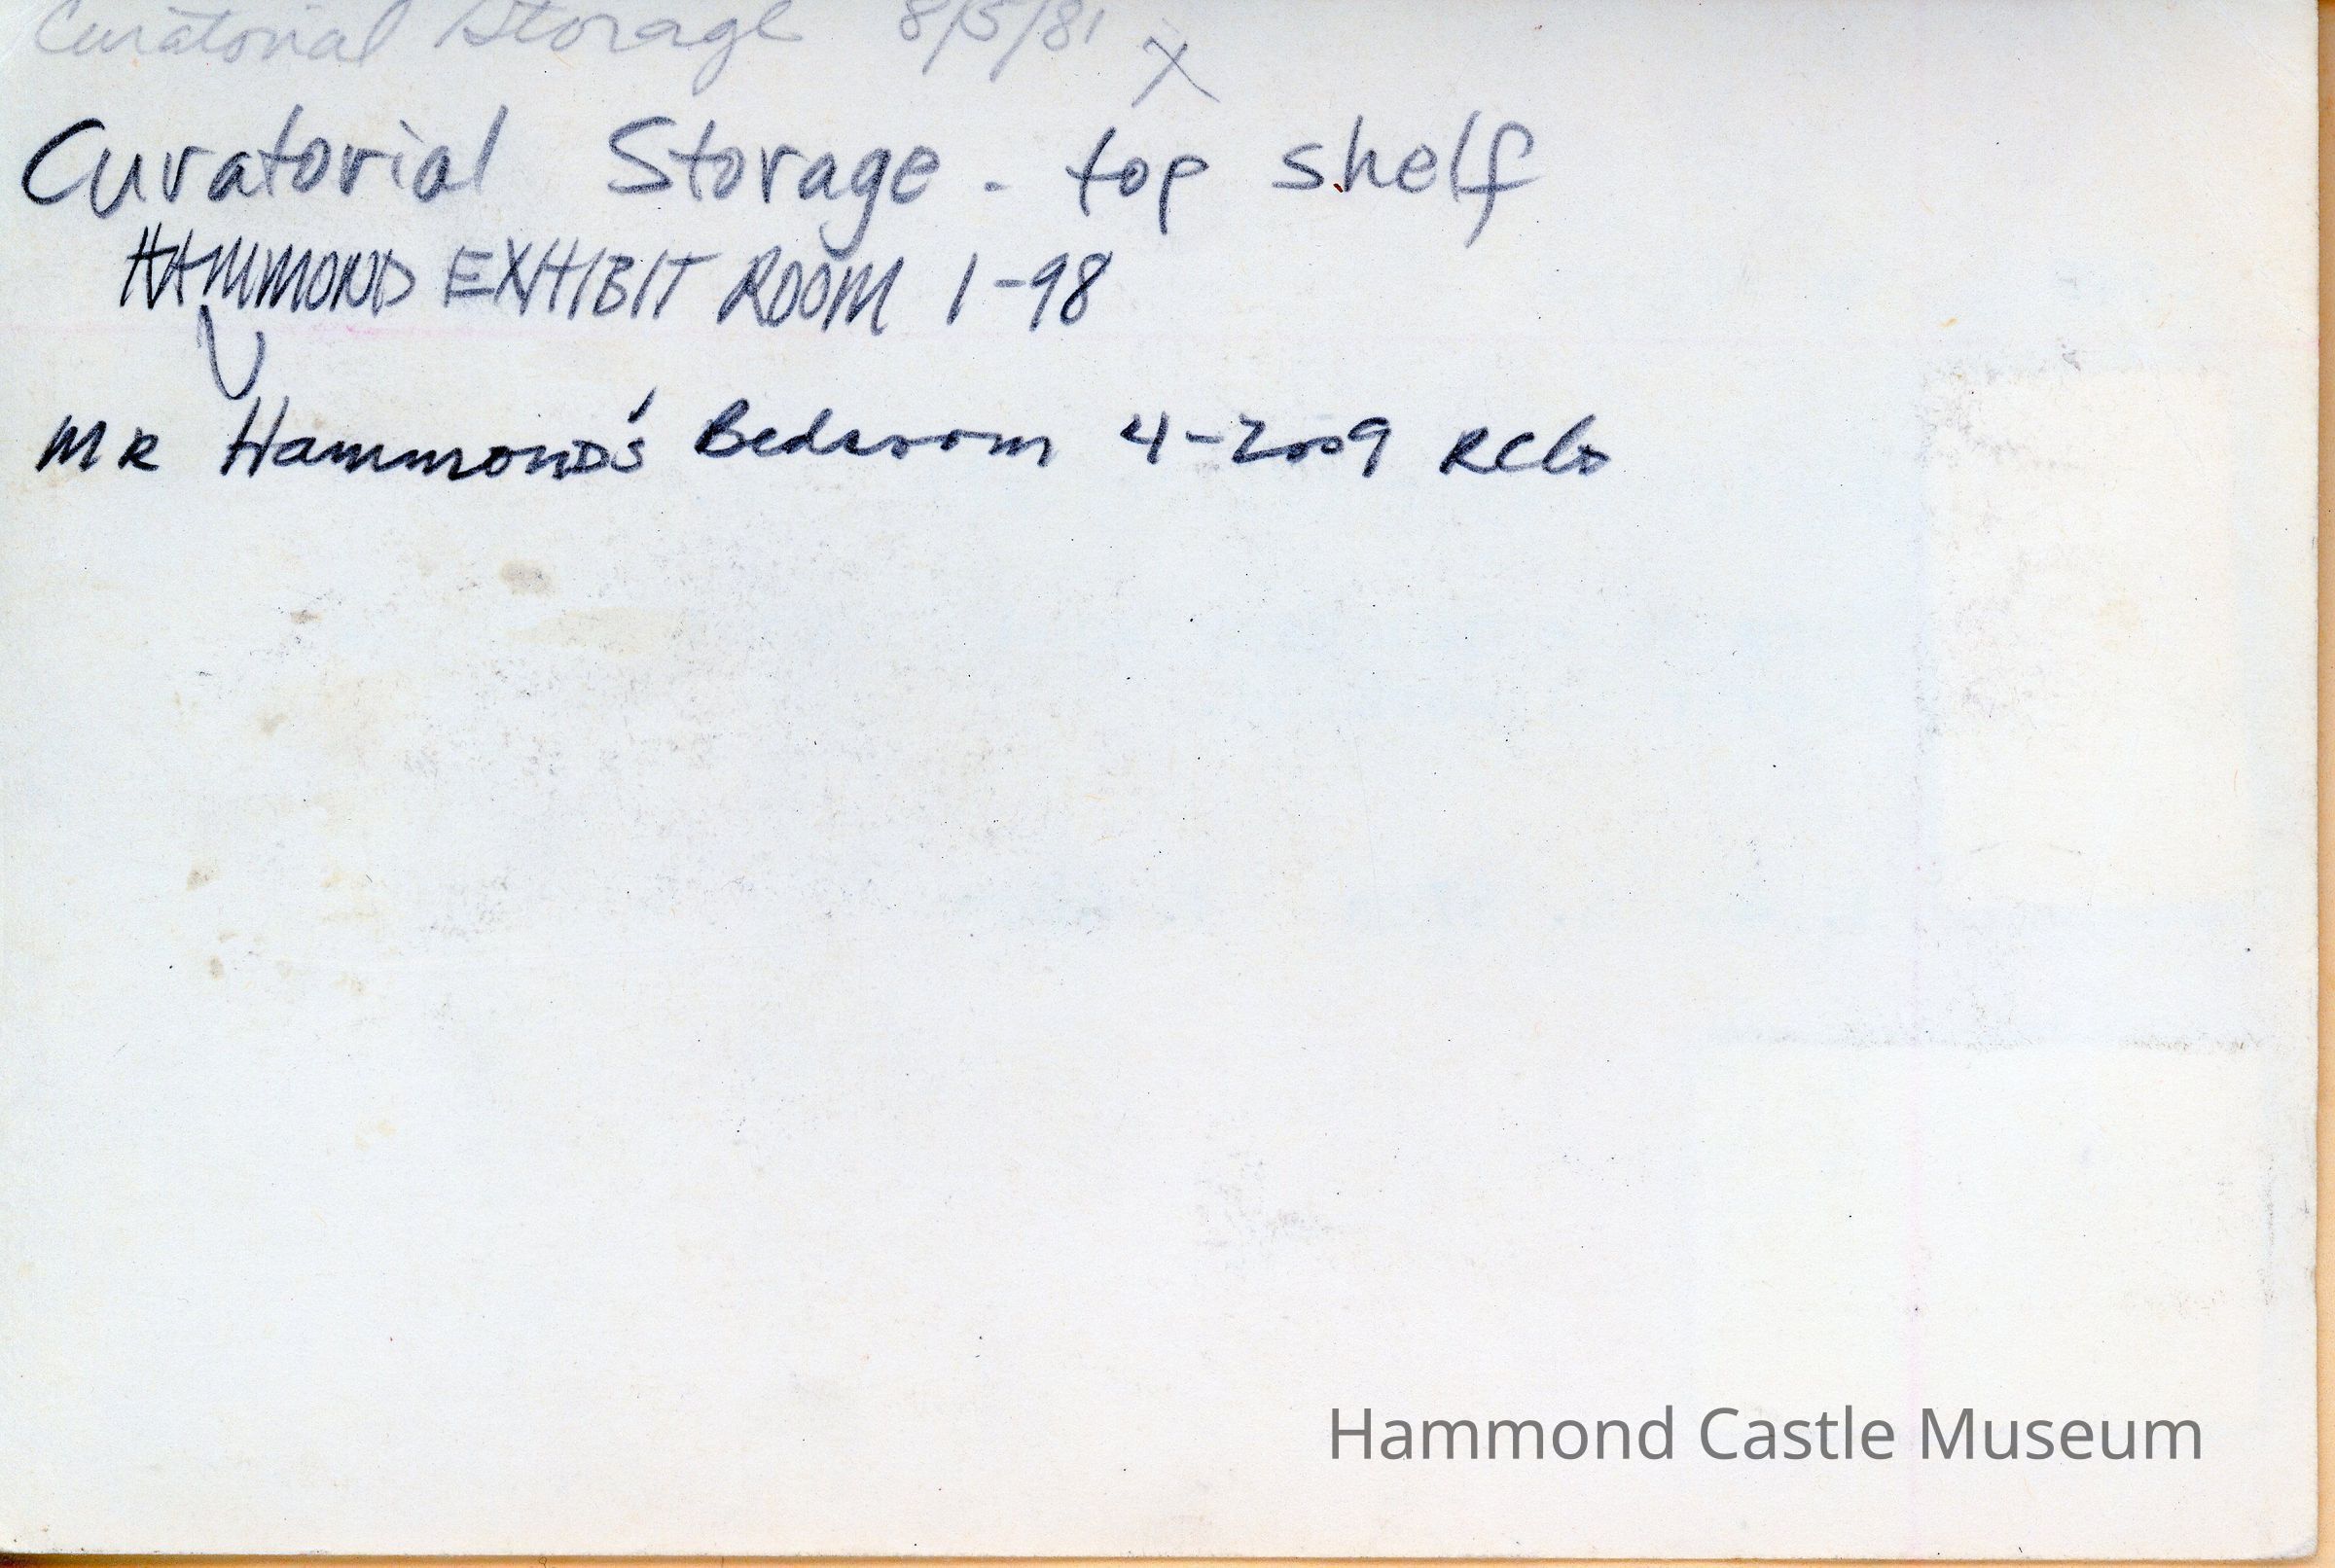 Curatorial Storage 8/5/81 X
Curatorial Storage - top shelf
HAMMOND EXHIBIT ROOM 1-98
MR Hammond's Bedroom 4-2009
Hammond Castle Museum